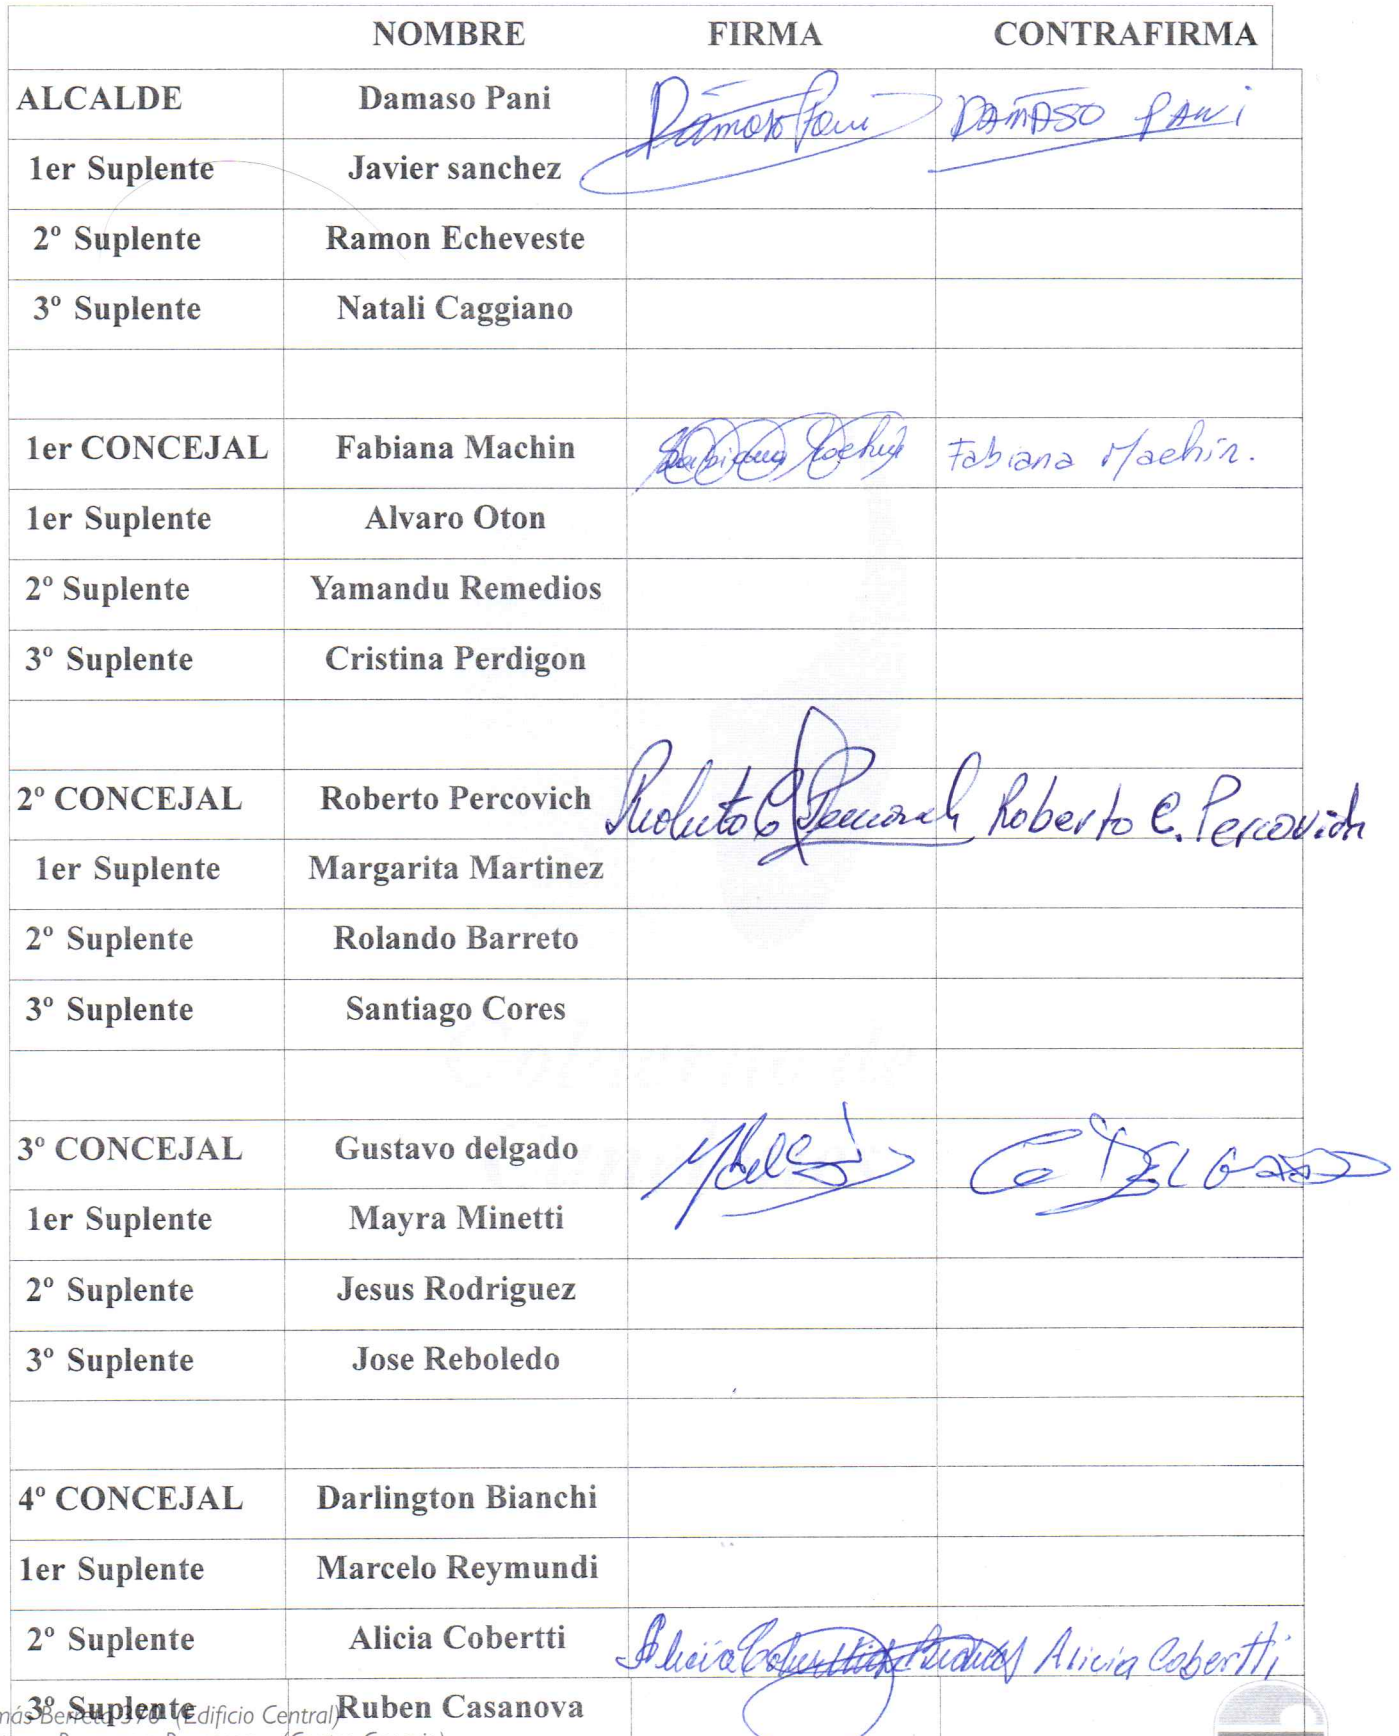 NOMBRE FIRMA CONTRAFIRMA
ALCALDE Damaso Pani Damaso Pani DAMASO PANI
1er Suplente Javier sanchez
2º Suplente Ramon Echeveste
3º Suplente Natali Caggiano
1er CONCEJAL Fabiana Machin Fabiana Machin Fabiana Machin.
1er Suplente Alvaro Oton
2º Suplente Yamandu Remedios
3º Suplente Cristina Perdigon
2º CONCEJAL Roberto Percovich Roberto C Percovich Roberto C. Percovich
1er Suplente Margarita Martinez
2º Suplente Rolando Barreto
3º Suplente Santiago Cores
3º CONCEJAL Gustavo delgado G DELGADO
1er Suplente Mayra Minetti
2º Suplente Jesus Rodriguez
3º Suplente Jose Reboledo
4º CONCEJAL Darlington Bianchi
1er Suplente Marcelo Reymundi
2º Suplente Alicia Cobertti Alicia Cobertti Alicia Cobertti
3º Suplente Ruben Casanova
más Berreta 370 (Edificio Central)